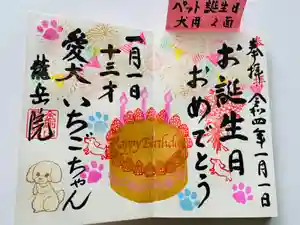 ペット誕生日
大月 2面
奉拝 令和四年一月一日
お誕生日
おめでとう
Happy Birthday
一月一日
十三才
愛犬いちごちゃん
龍岳院